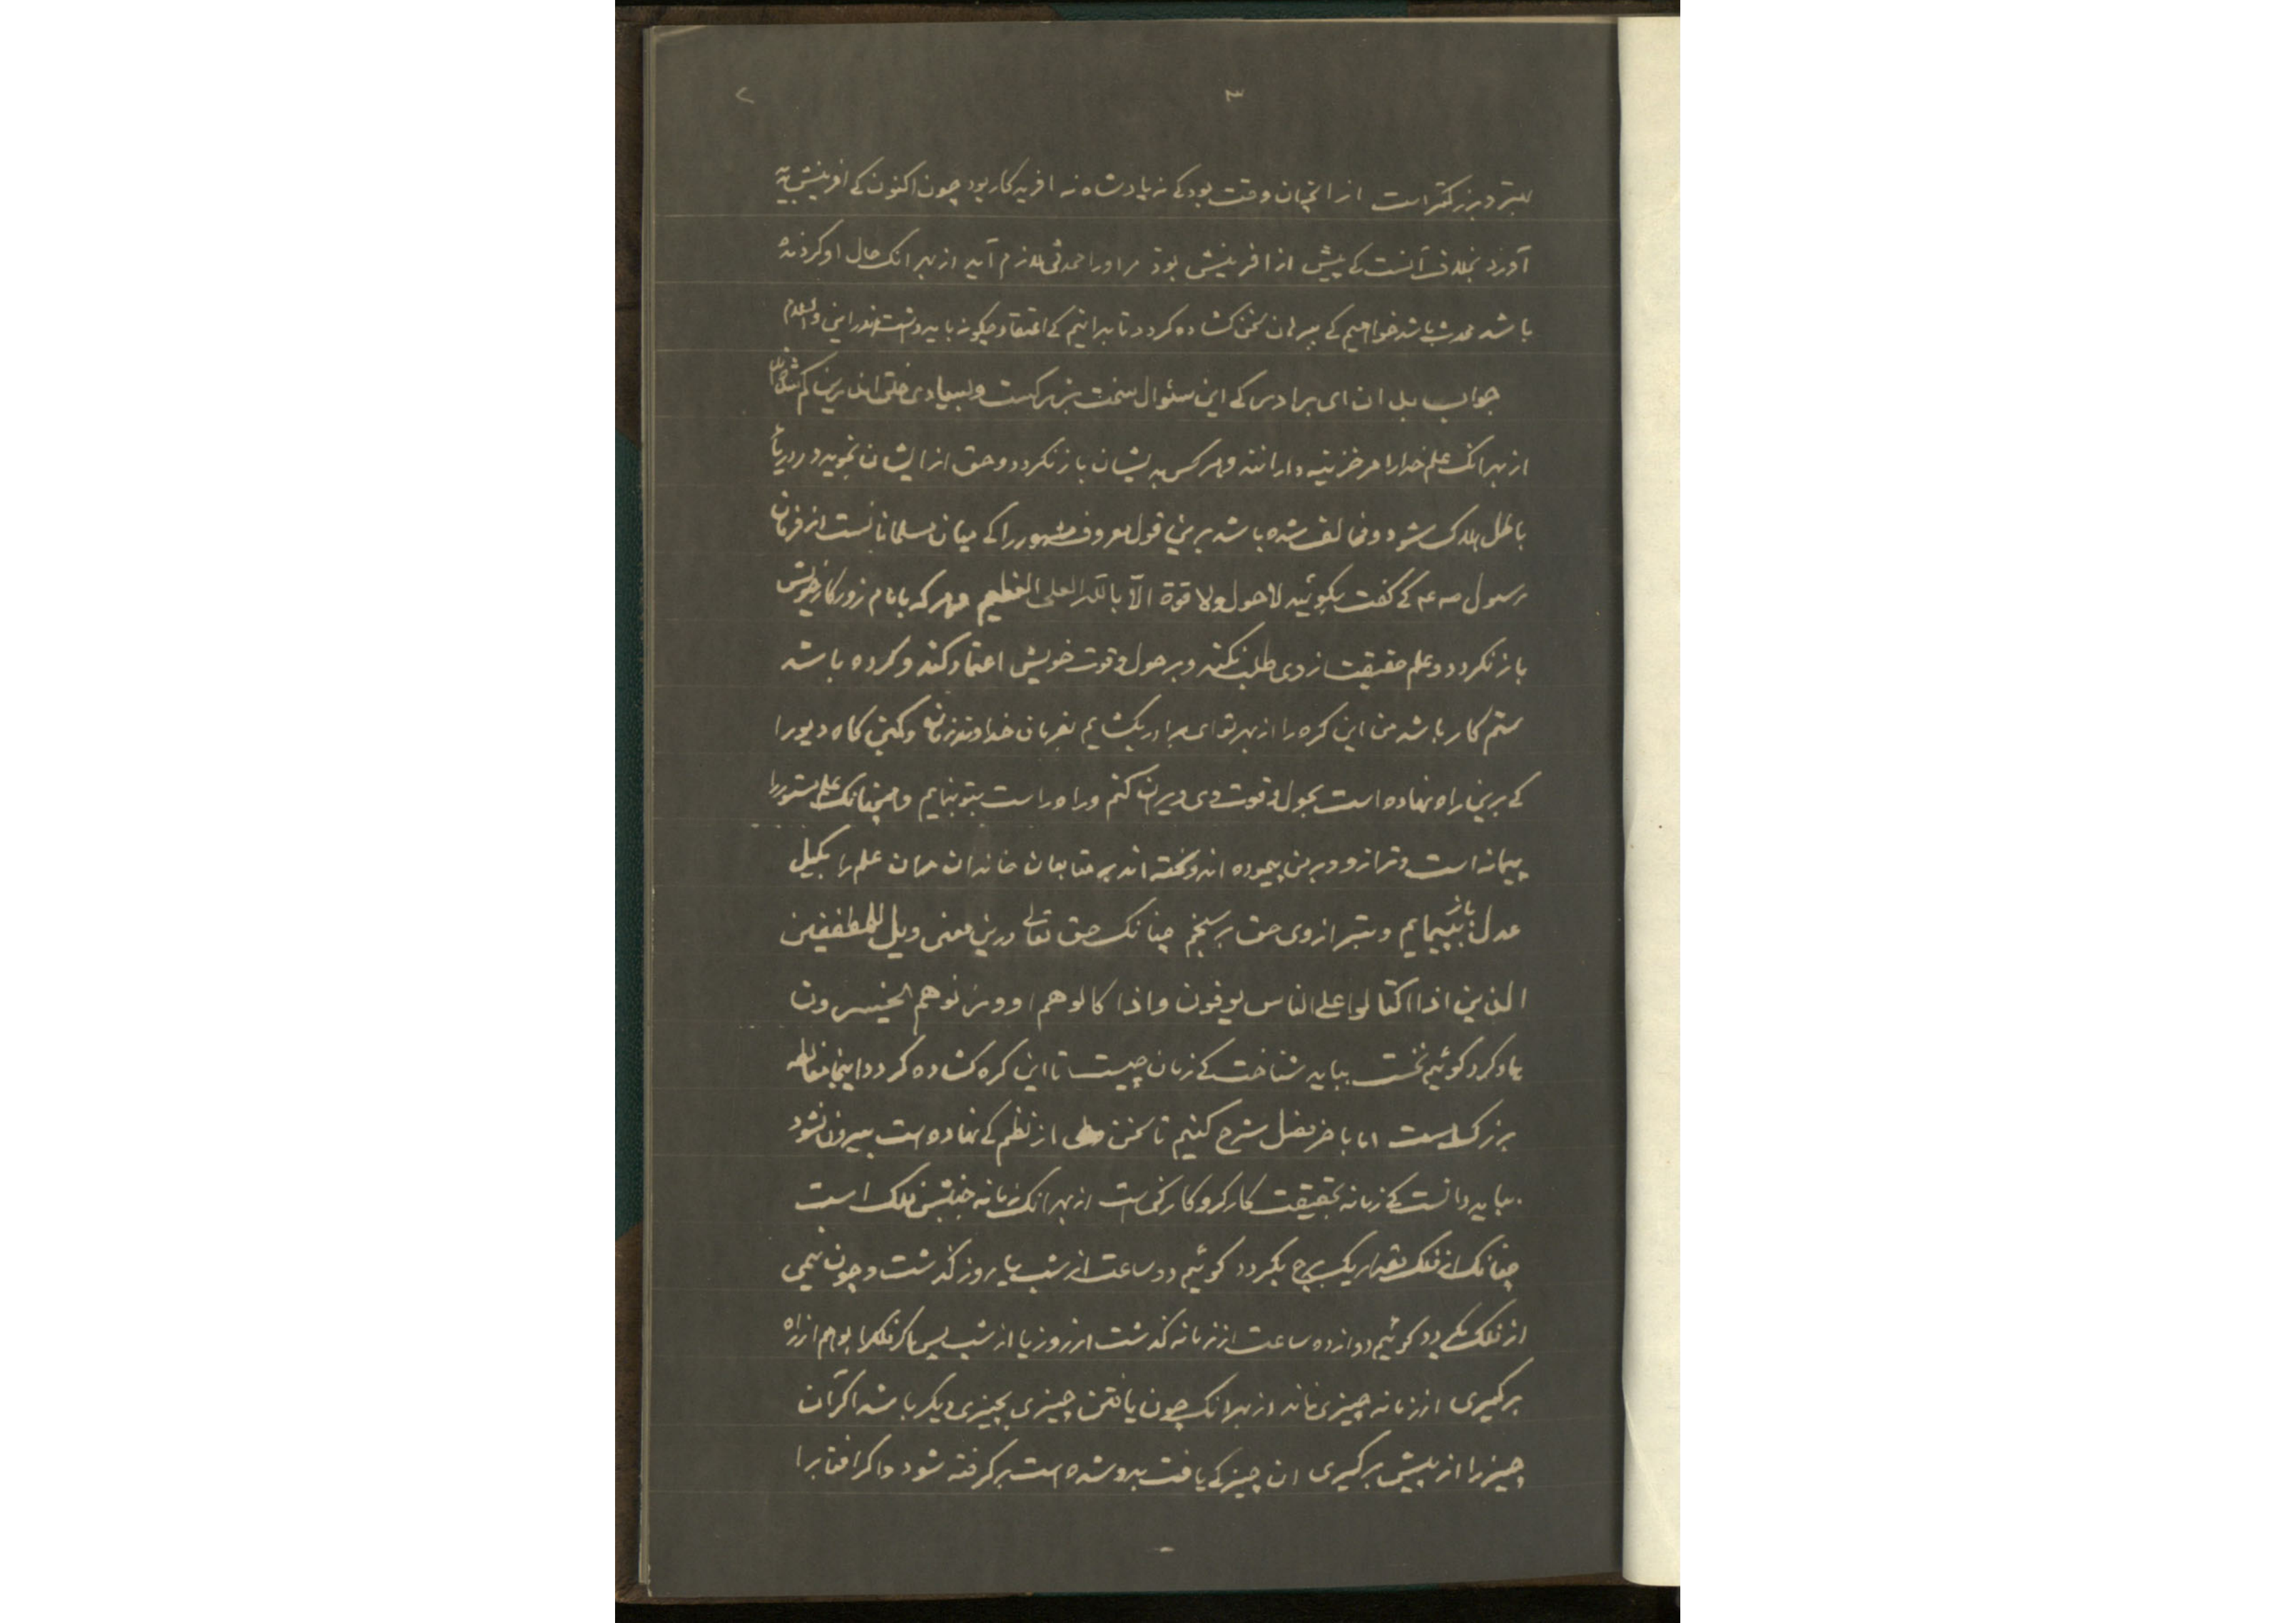 ۳ ۲
بهتر و بزرگتر است از انچنان وقت بود کے نه پادشاه نه افریدکار بود چون اکنون کے افرینش پدید
آورد بخلاف آنست کے پیش از افرینش بود مر اورا محدثی لازم آید از بهر انک حال او کردنده
باشد محدث باشد خواهیم کے بیان سخن کشاده کردد تا بدانیم کے اعتقاد چکونه باید داشت اندر این والسلام
جواب بدان ای برادر کے این سئوال سخت بزرکست و بسیاری خلق اندرین کم شده
از بهر انک علم خدارا مر خزینه دارانند و هر کس بدیشان باز نکردد و حق از ایشان نجوید در دریاء
باطل هلاک شود و مخالف شده باشد برین قول معروف مشهور را کے میان مسلمانانست از فرمان
رسول صه عم کے کفت بکوئید لا حول ولا قوة الّا بالله العلی العظیم و هر که با امام روزکار خویش
باز نکردد و علم حقیقت از وی طلب نکند و بر حول و قوت خویش اعتماد کند و کرده باشد
ستم کار باشد من این کره را از بهر تو ای برادر بکشایم بفرمان خداوند زمانه و کمین کاه دیو را
کے برین راه نهاده است بحول و قوت وی ویران کنم و راه راست بتو بنمایم و همچنانک علم مستور را
پیمانه است و ترازو و برین پیموده اند و سخته اند بر متابعان خاندان من ان علم را بکیل
عدل باز بپیمایم و بترازوی حق برسنجم چنانک حق تعالے درین معنی ویل للمطففین
الذین اذا اکتالوا علی الناس یوفون و اذا کالوهم او وزنوهم یخسرون
یاد کرد کوئیم نخست بباید شناخت کے زمان چیست تا این کره کشاده کردد و اینجا مغالطه
بزرک است اما باخر فصل شرح کنیم تا سخن از نظم کے نهاده است بیرون نشود
بباید دانست کے زمانه بحقیقت کارکرد کارکن است از بهر انک زمانه جنبش فلک است
چنانک از فلک مقدار یک برج بکردد کوئیم دو ساعت از شب یا روز کذشت و چون نیمی
از فلک بکردد کوئیم دوازده ساعت از زمانه کذشت از روز یا از شب پس اکر فلک را بوهم از راه
برکیری از زمانه چیزی نماند از بهر انک چون یافتن چیزی بچیزی دیکر باشد اکر آن
چیز را از پیش برکیری ان چیز کے یافت بدو شده است برکرفته شود و اکر افتاب را